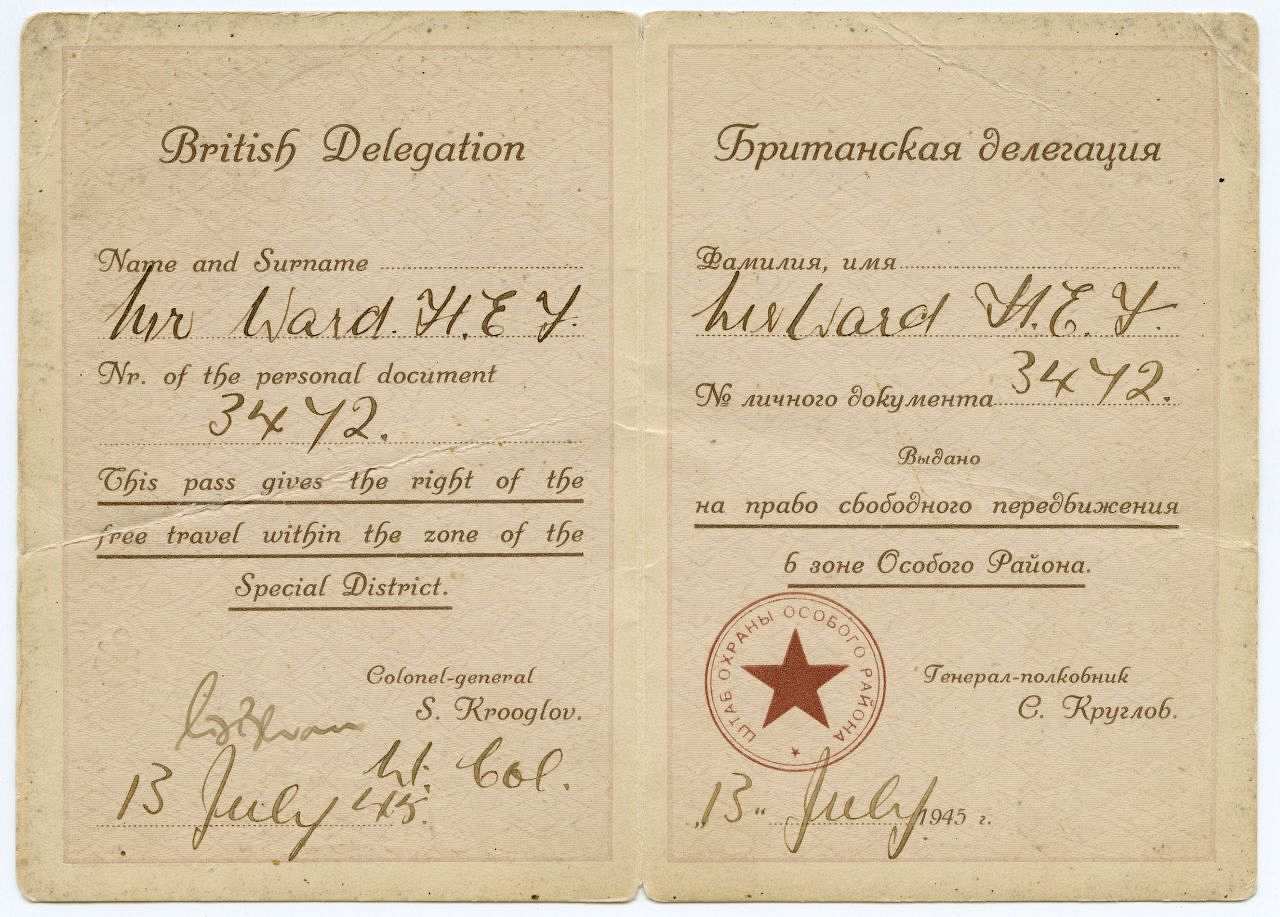 British Delegation
Name and Surname
Mr Ward. H. E. Y.
Nr. of the personal document
3472.
This pass gives the right of the
free travel within the zone of the
Special District.
Colonel-general
S. Krooglov.
Lt. Col.
13 July 45.
Британская делегация
Фамилия, имя
Mr Ward H. E. Y.
№ личного документа 3472.
Выдано
на право свободного передвижения
в зоне Особого Района.
ШТАБ ОХРАНЫ ОСОБОГО РАЙОНА
Генерал-полковник
С. Круглов.
„13“ July 1945 г.